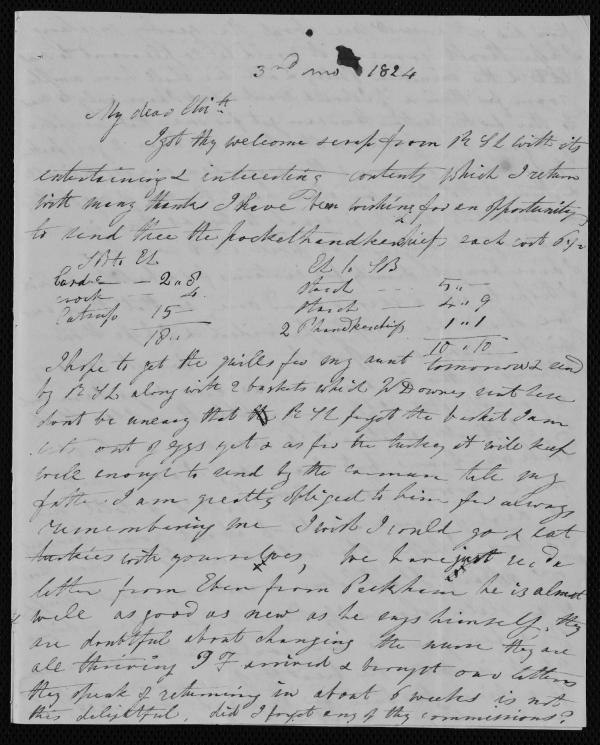 3rd mo 1824
My dear Eliz th
I got thy welcome scrap from R S L with its
entertaining & interesting contents which I return
with many thanks I have been wishing for an opportunity
to send thee the pockethandkerchief each cost 6½
SB to EL EL to SB
Cards — 2"8 starch — 5"
4 starch — 4"9
15 — 2 Phandkerchiefs 1"1
18" 10"10
I hope to get the quills for my aunt tomorrow & send
by R S L along with 2 baskets which W Downes sent here
dont be uneasy that R S L forgot the basket I am
not out of eggs yet & as for the turkey it will keep
well enough to send by the carman tell my
father I am greatly obliged to him for always
remembering me I wish I could go & eat
turkies with yourselves, We have just recd a
letter from Eben from Peckham he is almost
well as good as new as he says himself, they
are doubtful about changing the nurse they are
all thriving J F arrived & brought our letters
they speak of returning in about 6 weeks is not
this delightful, did I forget any of thy commissions?